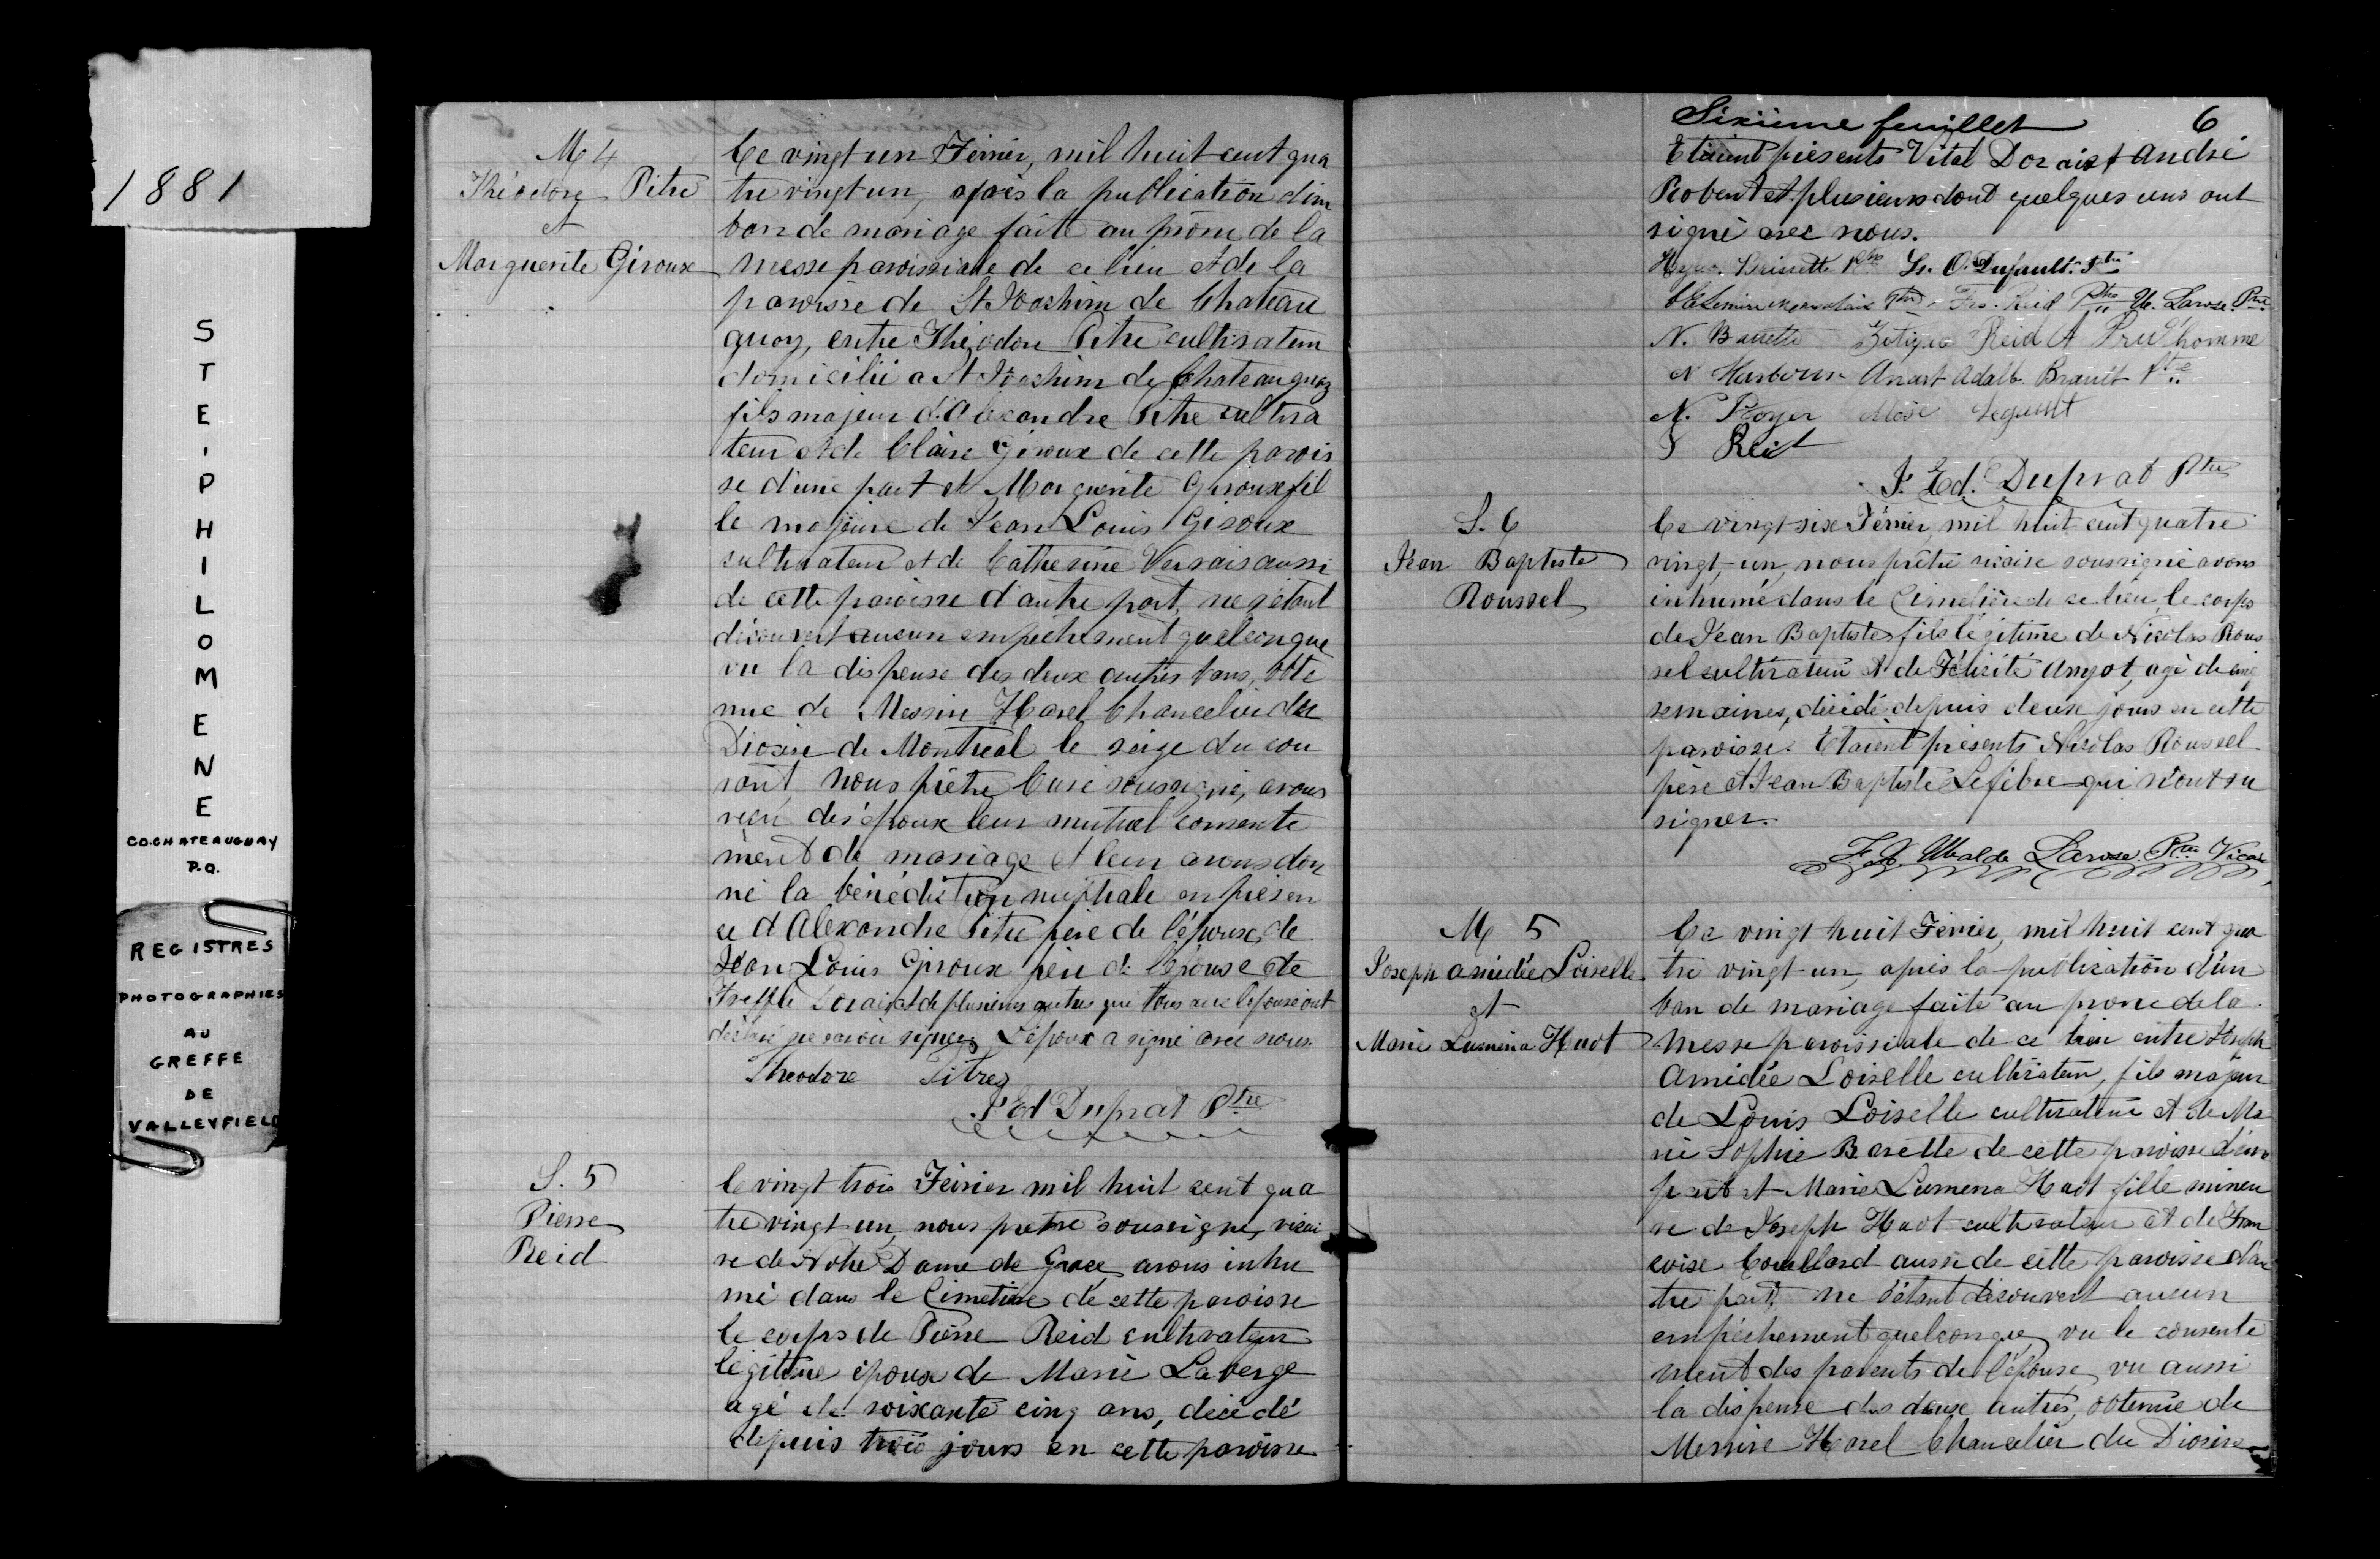 1881
STE, PHILOMENE
CO. CHATEAUGUAY
P.Q.
REGISTRES
PHOTOGRAPHIES
AU
GREFFE
DE
VALLEYFIELD
M 4
Théodore Pitre
et
Marguerite Giroux
Ce vingt un Février, mil huit cent qua
tre vingt un, après la publication d'un
ban de mariage faite au prône de la
messe paroissiale de ce lieu et de la
paroisse de St Joachim de Chateau
guay, entre Théodore Pitre cultivateur
domicilié a St Joachim de Chateauguay
fils majeur d'Alexandre Pitre cultiva
teur et de Claire Giroux de cette parois
se d'une part et Marguerite Giroux fil
le majeure de Jean Louis Giroux
cultivateur et de Catherine Versais aussi
de cette paroisse d'autre part, ne s'étant
découvert aucun empêchement quelconque
vu la dispense des deux autres bans, obte
nue de Messire Harel Chancelier du
Diocèse de Montreal le seize du cou
rant, nous prêtre Curé soussigné, avons
reçu des époux leur mutuel consente
ment de mariage et leur avons don
né la bénédiction nuptiale en présen
ce d'Alexandre Pitre père de l'époux, de
Jean Louis Giroux père de l'épouse de
Treffle Dorais et de plusieurs autres qui tous avec l'épouse ont
déclaré ne savoir signer. L'époux a signé avec nous.
Theodore Pitre
J. Ed Duprat Ptre
S. 5
Pierre
Reid
le vingt trois Février mil huit cent qua
tre vingt un, nous prêtre soussigné, vicai
re de Notre Dame de Grace avons inhu
mé dans le Cimetière de cette paroisse
le corps de Pierre Reid cultivateur
légitime époux de Marie Laberge
agé de soixante cinq ans, décédé
depuis trois jours en cette paroisse
Sixième feuillet 6
Etaient présents Vital Dorais et André
Robert et plusieurs dont quelques uns ont
signé avec nous.
Brissette Ptre Ls. O. Dufault. Ptre
Ptre Frs. Reid Ptre U. Larose. Ptre
N. Barrette Reid A Prud'homme
N Adalb. Brault Ptre
N. Royer Moïse Legault
Reid
J. Ed. Duprat Ptre
S. 6
Jean Baptiste
Roussel
Ce vingt-six Février, mil huit cent quatre
vingt-un, nous prêtre vicaire soussigné avons
inhumé dans le Cimetière de ce lieu, le corps
de Jean Baptiste, fils légitime de Nicolas Rous
sel cultivateur et de Félicité Amyot, agé de cinq
semaines, décédé depuis deux jours en cette
paroisse. Etaient présents Nicolas Roussel
père et Jean Baptiste Lefebre qui n'ont su
signer.
Ubalde Larose. Ptre Vicaire
M 5
Joseph Amédée Loiselle
et
Marie Lumena Huot
Ce vingt huit Février, mil huit cent qua
tre vingt-un, après la publication d'un
ban de mariage faite au prone de la
messe paroissiale de ce lieu entre Joseph
Amédée Loiselle cultivateur, fils majeur
de Louis Loiselle cultivateur et de Ma
rie Sophie Barette de cette paroisse d'une
part et Marie Lumena Huot fille mineu
re de Joseph Huot cultivateur et de Fran
coise Couillard aussi de cette paroisse d'au
tre part, ne s'étant découvert aucun
empêchement quelconque, vu le consente
ment des parents de l'épouse, vu aussi
la dispense des deux autres, obtenue de
Messire Harel Chancelier du Diocèse